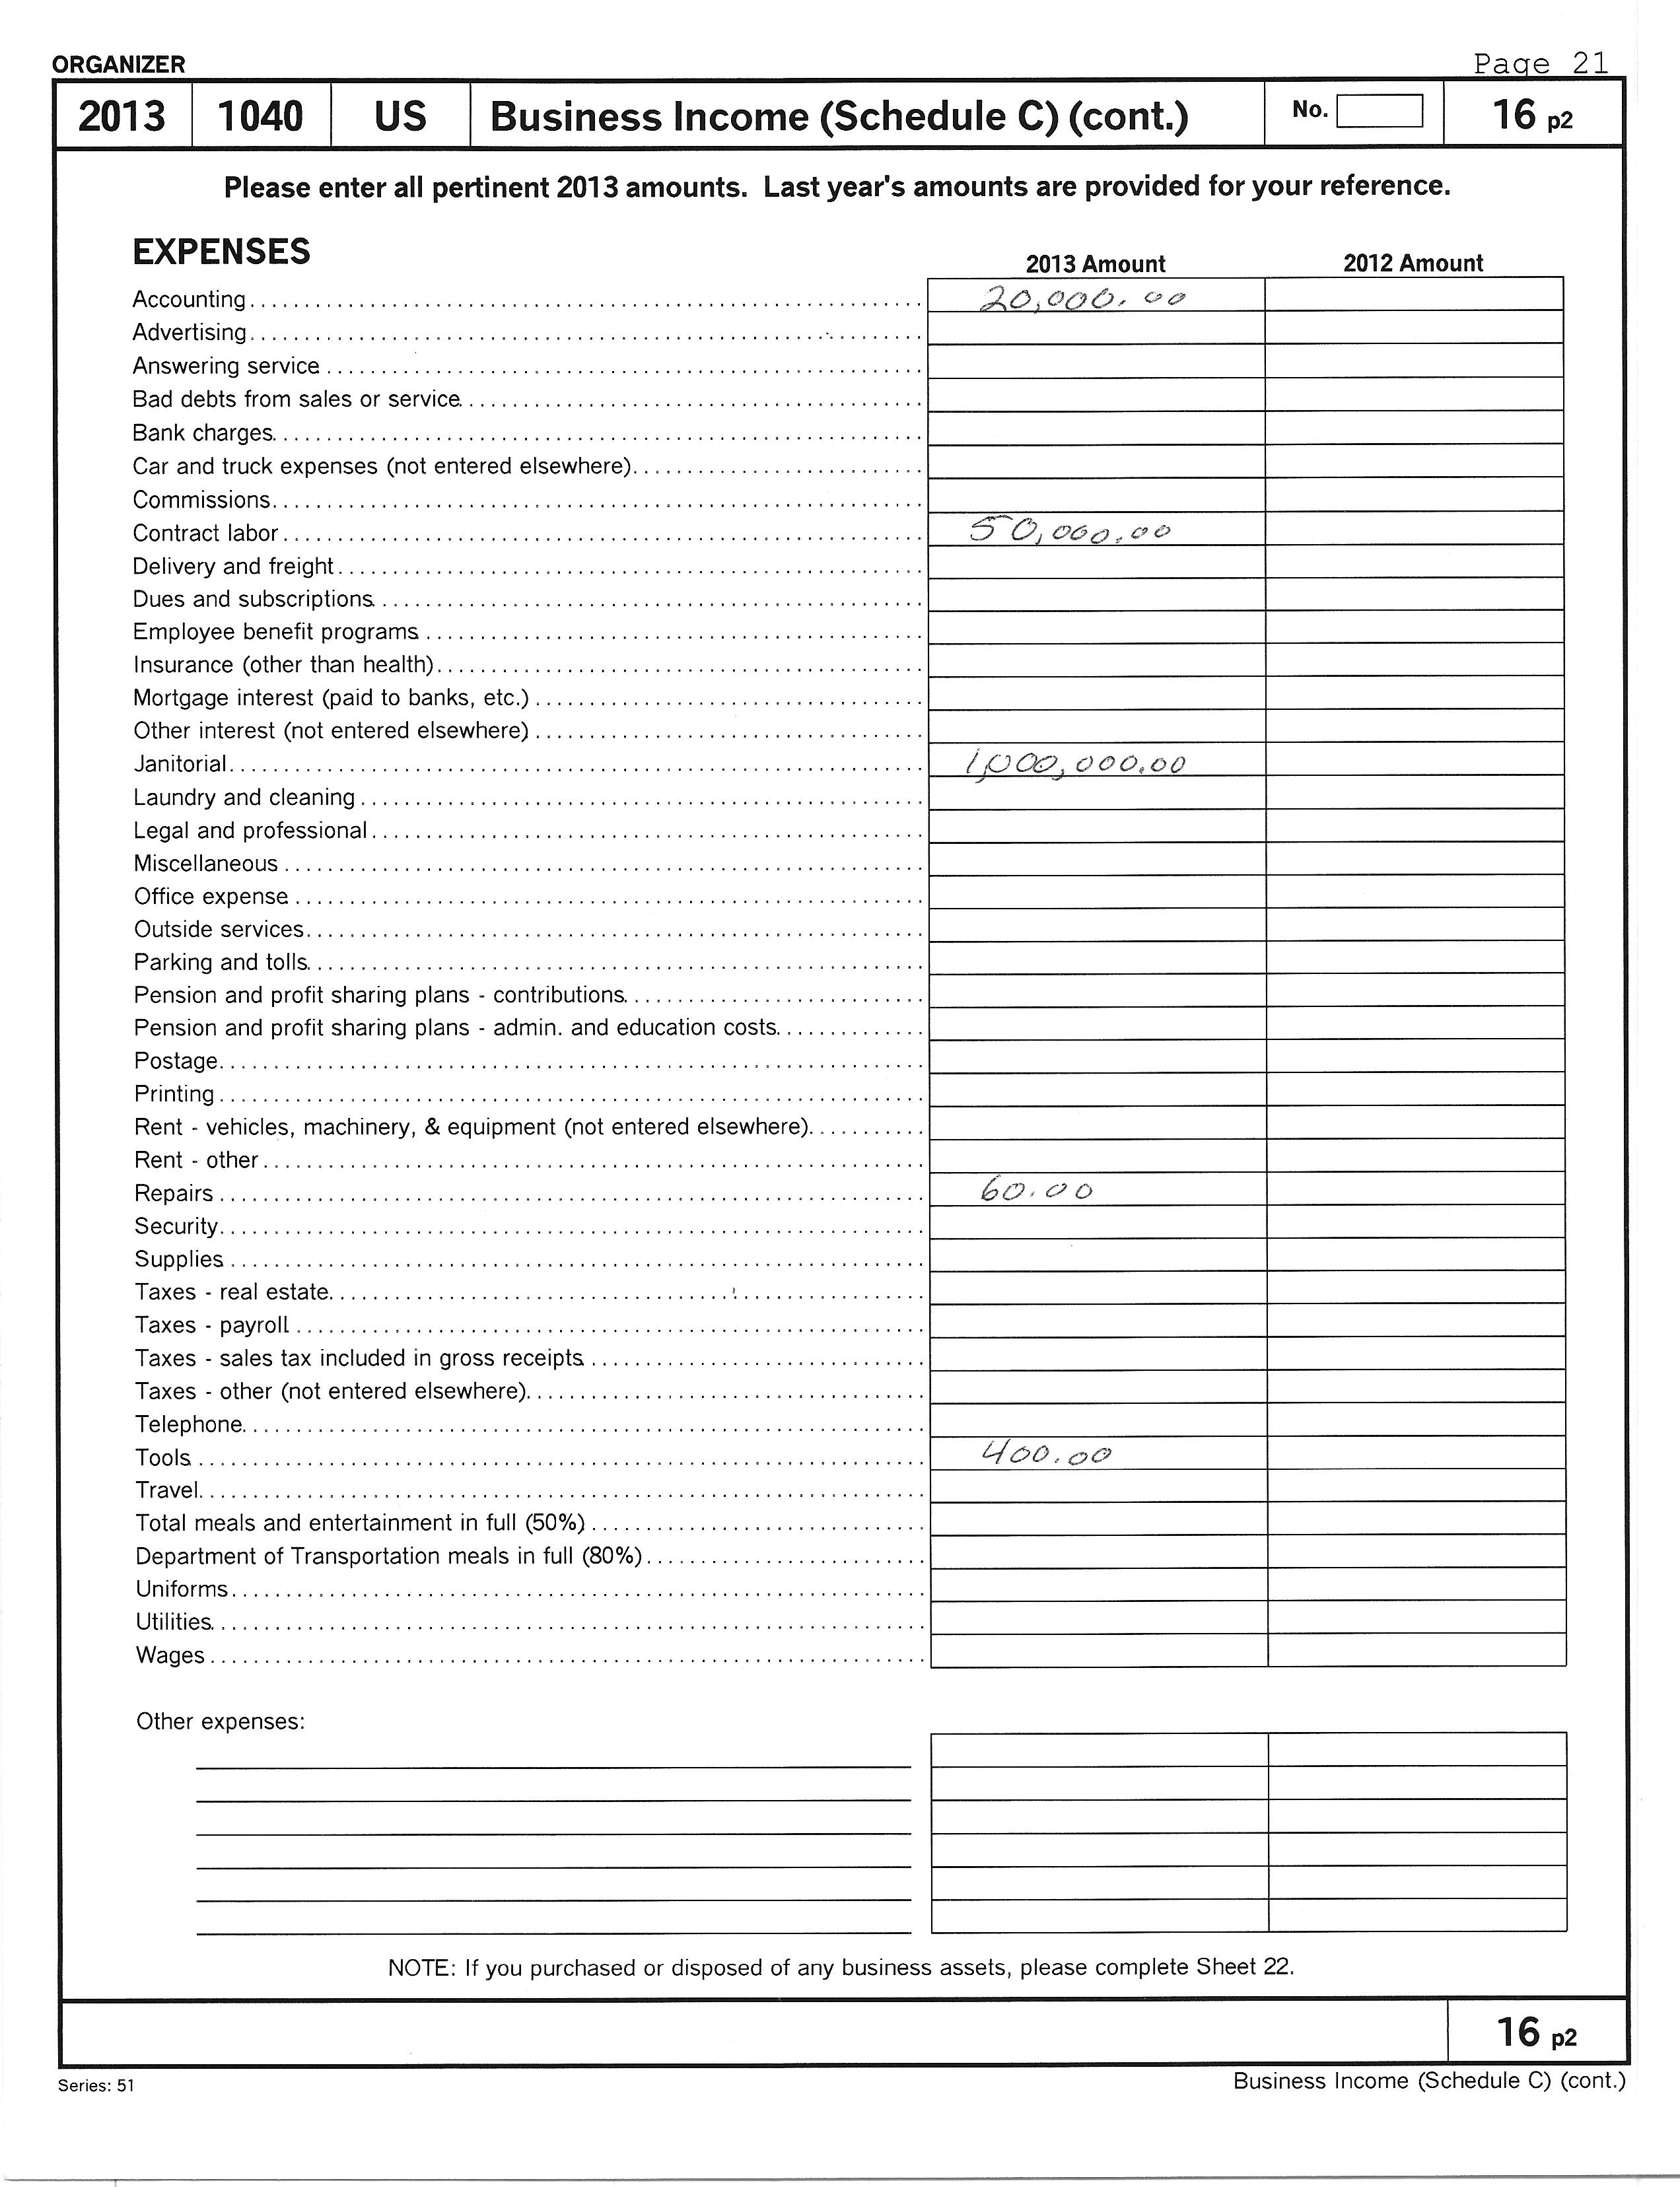 ORGANIZER Page 21
2013 1040 US Business Income (Schedule C) (cont.) No. 16 p2
Please enter all pertinent 2013 amounts. Last year's amounts are provided for your reference.
EXPENSES
2013 Amount 2012 Amount
Accounting 20,000.00
Advertising
Answering service
Bad debts from sales or service
Bank charges
Car and truck expenses (not entered elsewhere)
Commissions
Contract labor 50,000.00
Delivery and freight
Dues and subscriptions
Employee benefit programs
Insurance (other than health)
Mortgage interest (paid to banks, etc.)
Other interest (not entered elsewhere)
Janitorial 1,000,000.00
Laundry and cleaning
Legal and professional
Miscellaneous
Office expense
Outside services
Parking and tolls
Pension and profit sharing plans - contributions
Pension and profit sharing plans - admin. and education costs
Postage
Printing
Rent - vehicles, machinery, & equipment (not entered elsewhere)
Rent - other
Repairs 60.00
Security
Supplies
Taxes - real estate
Taxes - payroll
Taxes - sales tax included in gross receipts
Taxes - other (not entered elsewhere)
Telephone
Tools 400.00
Travel
Total meals and entertainment in full (50%)
Department of Transportation meals in full (80%)
Uniforms
Utilities
Wages
Other expenses:
NOTE: If you purchased or disposed of any business assets, please complete Sheet 22.
16 p2
Series: 51 Business Income (Schedule C) (cont.)